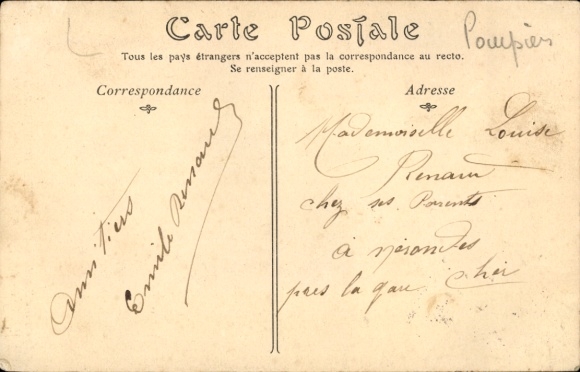 Carte Postale
Pompiers
Tous les pays étrangers n'acceptent pas la correspondance au recto.
Se renseigner à la poste.
Correspondance
Amitiers
Emile Renaud
Adresse
Mademoiselle Louise
Renaud
chez ses Parents
à
pres la gare Cher